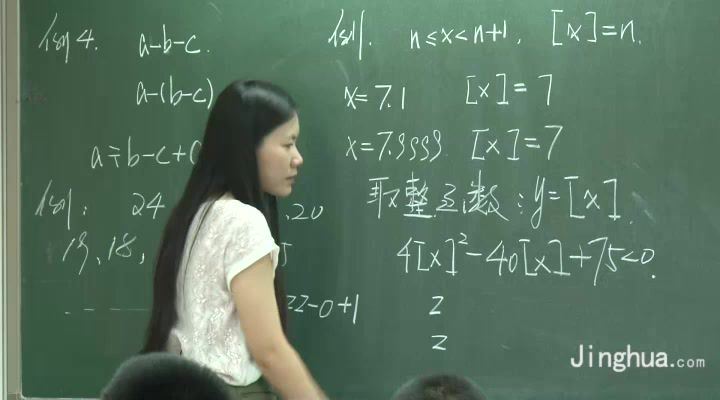 例4. a-b-c.
a-(b-c)
a÷b-c+
例: 24 .20
19、18, 5
22-0+1
例. n≤x<n+1, [x]=n.
x=7.1 [x]=7
x=7.9999 [x]=7
取整函数:y=[x].
4[x]²-40[x]+75<0.
2
2
Jinghua.com